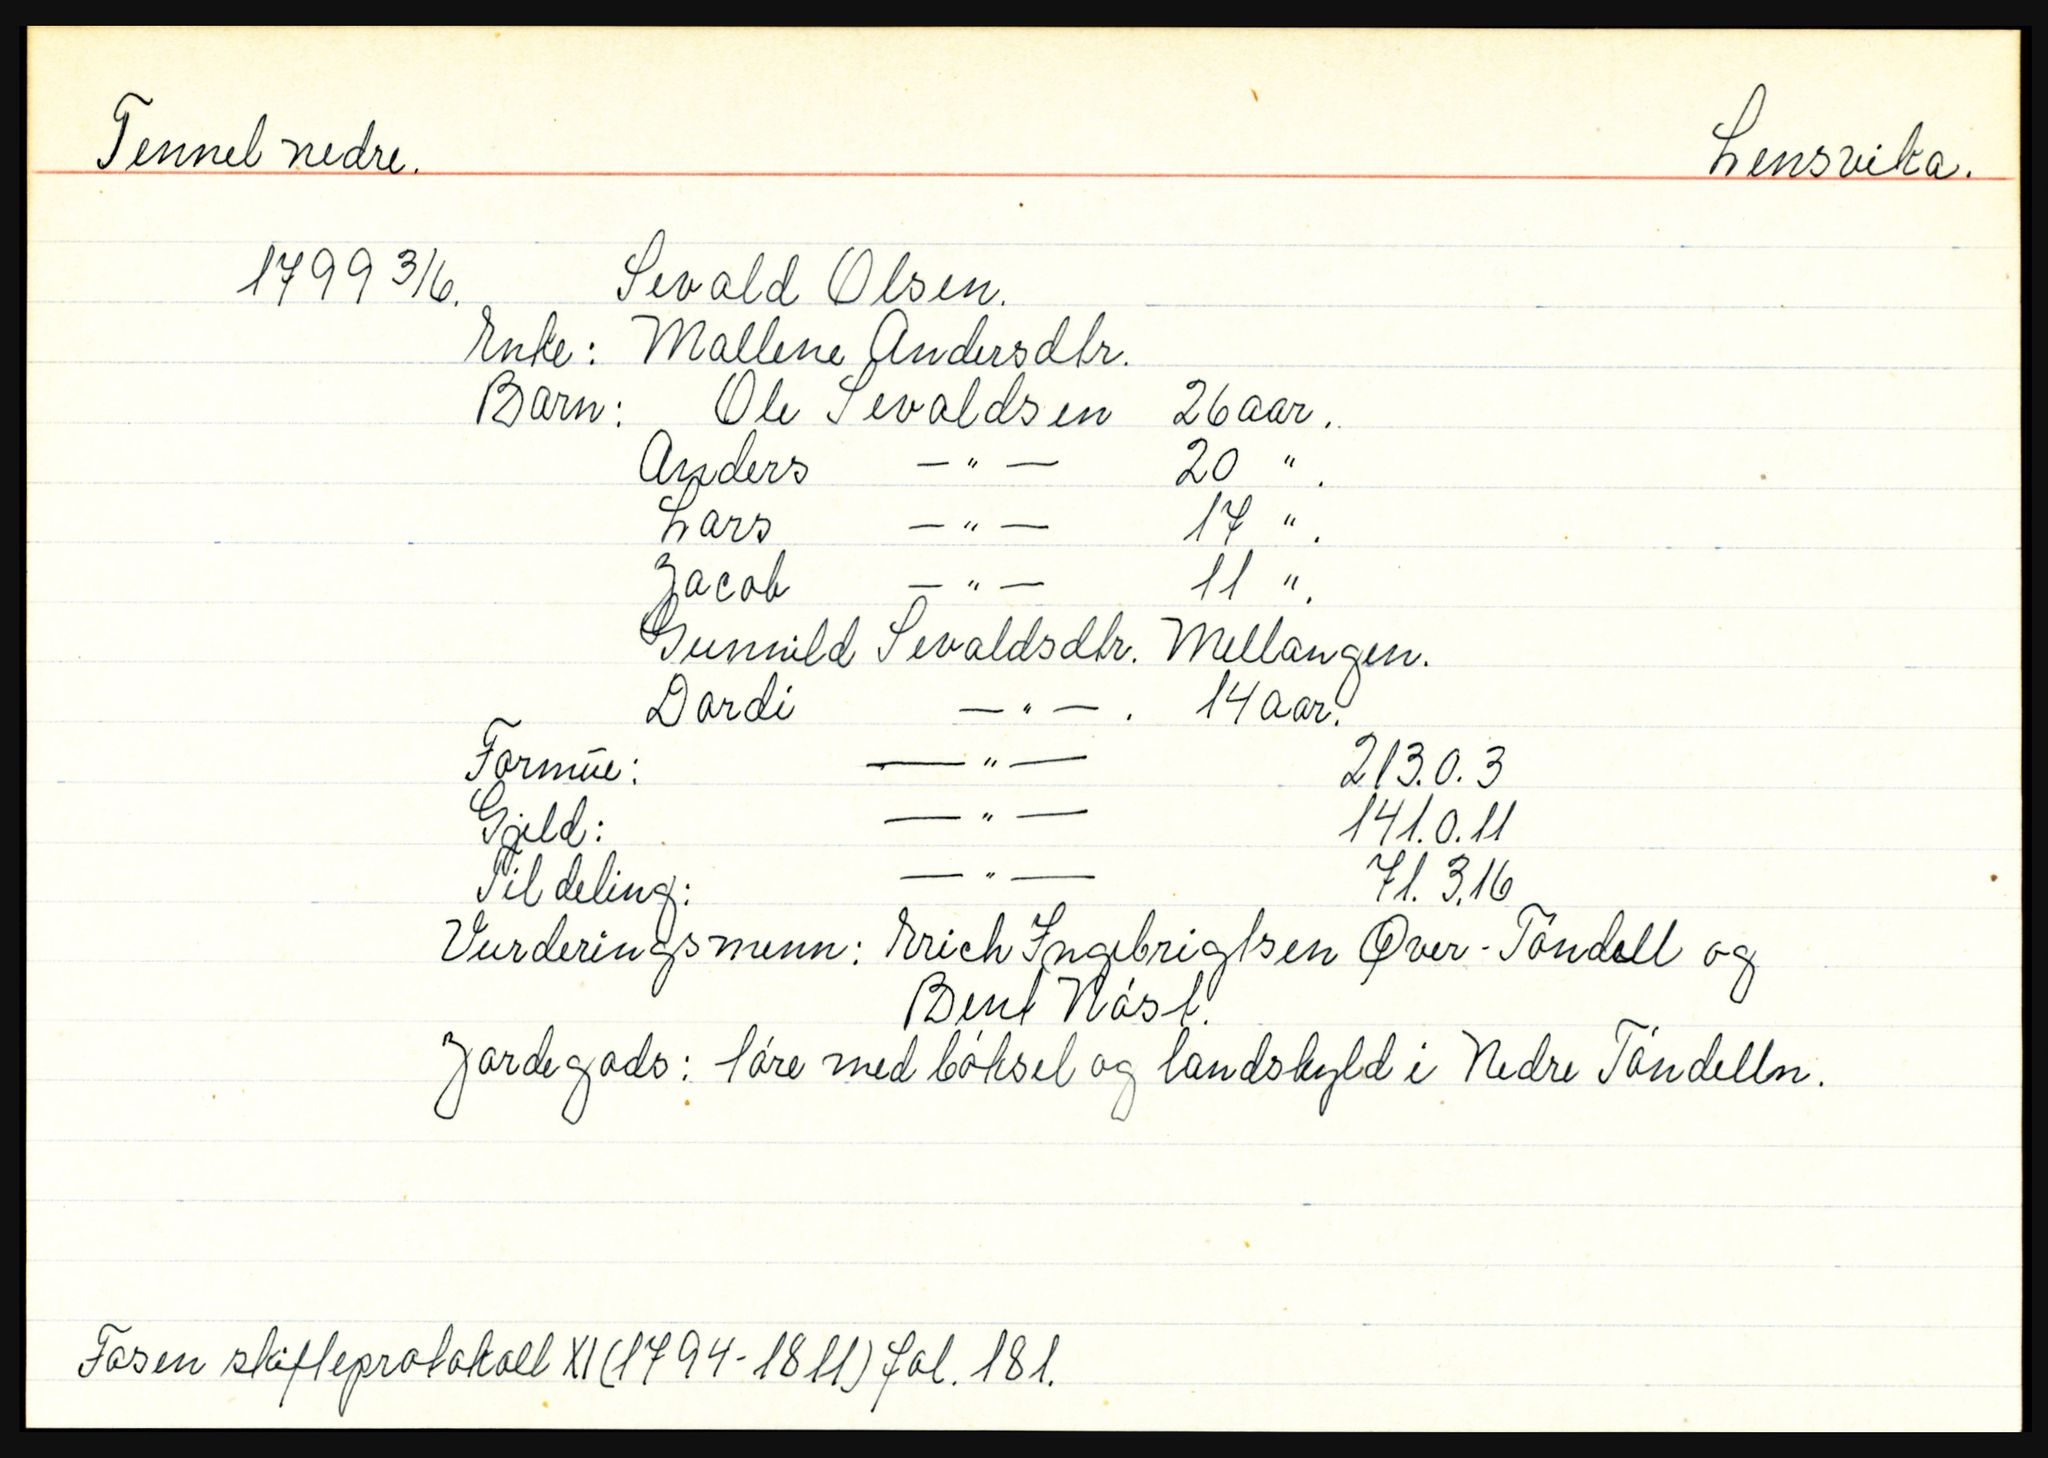 Tennel nedre. Lensvika.
1799 3/6. Sevald Olsen.
Enke: Mallene Andersdtr.
Barn: Ole Sevaldsen 26 aar.
Anders — " — 20 ".
Lars — " — 17 ".
Jacob — " — 11 ".
Gunnild Sevaldsdtr. Mellangen.
Dordi — " — . 14 aar.
Formue: — " — 213.0.3
Gjeld: — " — 141.0.11
Til deling: — " — 71.3.16
Vurderingsmenn: Erich Ingebrigtsen Över-Töndell og
Bent Nöst.
Jordegods: 1 öre med böksel og landskyld i Nedre Töndelln.
Fosen skifteprotokoll XI (1794-1811) fol. 181.